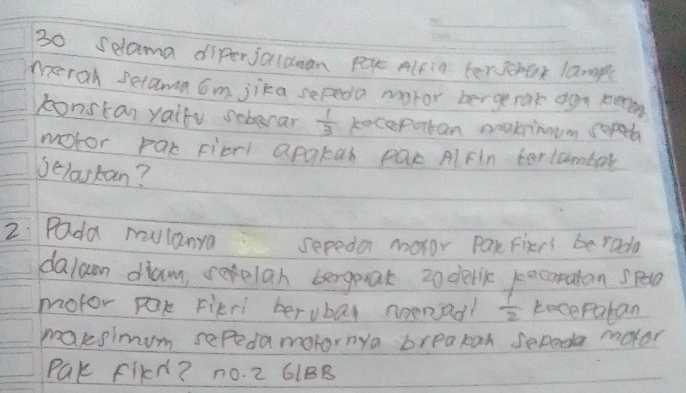 30 Selama diperjalanan Pak Alfin terjebak lampu
merah selama 6m jika sepeda motor bergerak dgn
konstan yaitu sebesar 1/3 kecepatan maksimum sepeda
motor Pak Fikri apakah Pak Alfin terlambat
Jelaskan?
2 Pada mulanya sepeda motor Pak Fikri berada
dalam diam, setelah bergerak 20 detik kecepatan
motor Pak Fikri berubah menjadi 1/2 kecepatan
maksimum sepeda motornya brpakah sepeda motor
Pak Fikri? no.2 GLBB